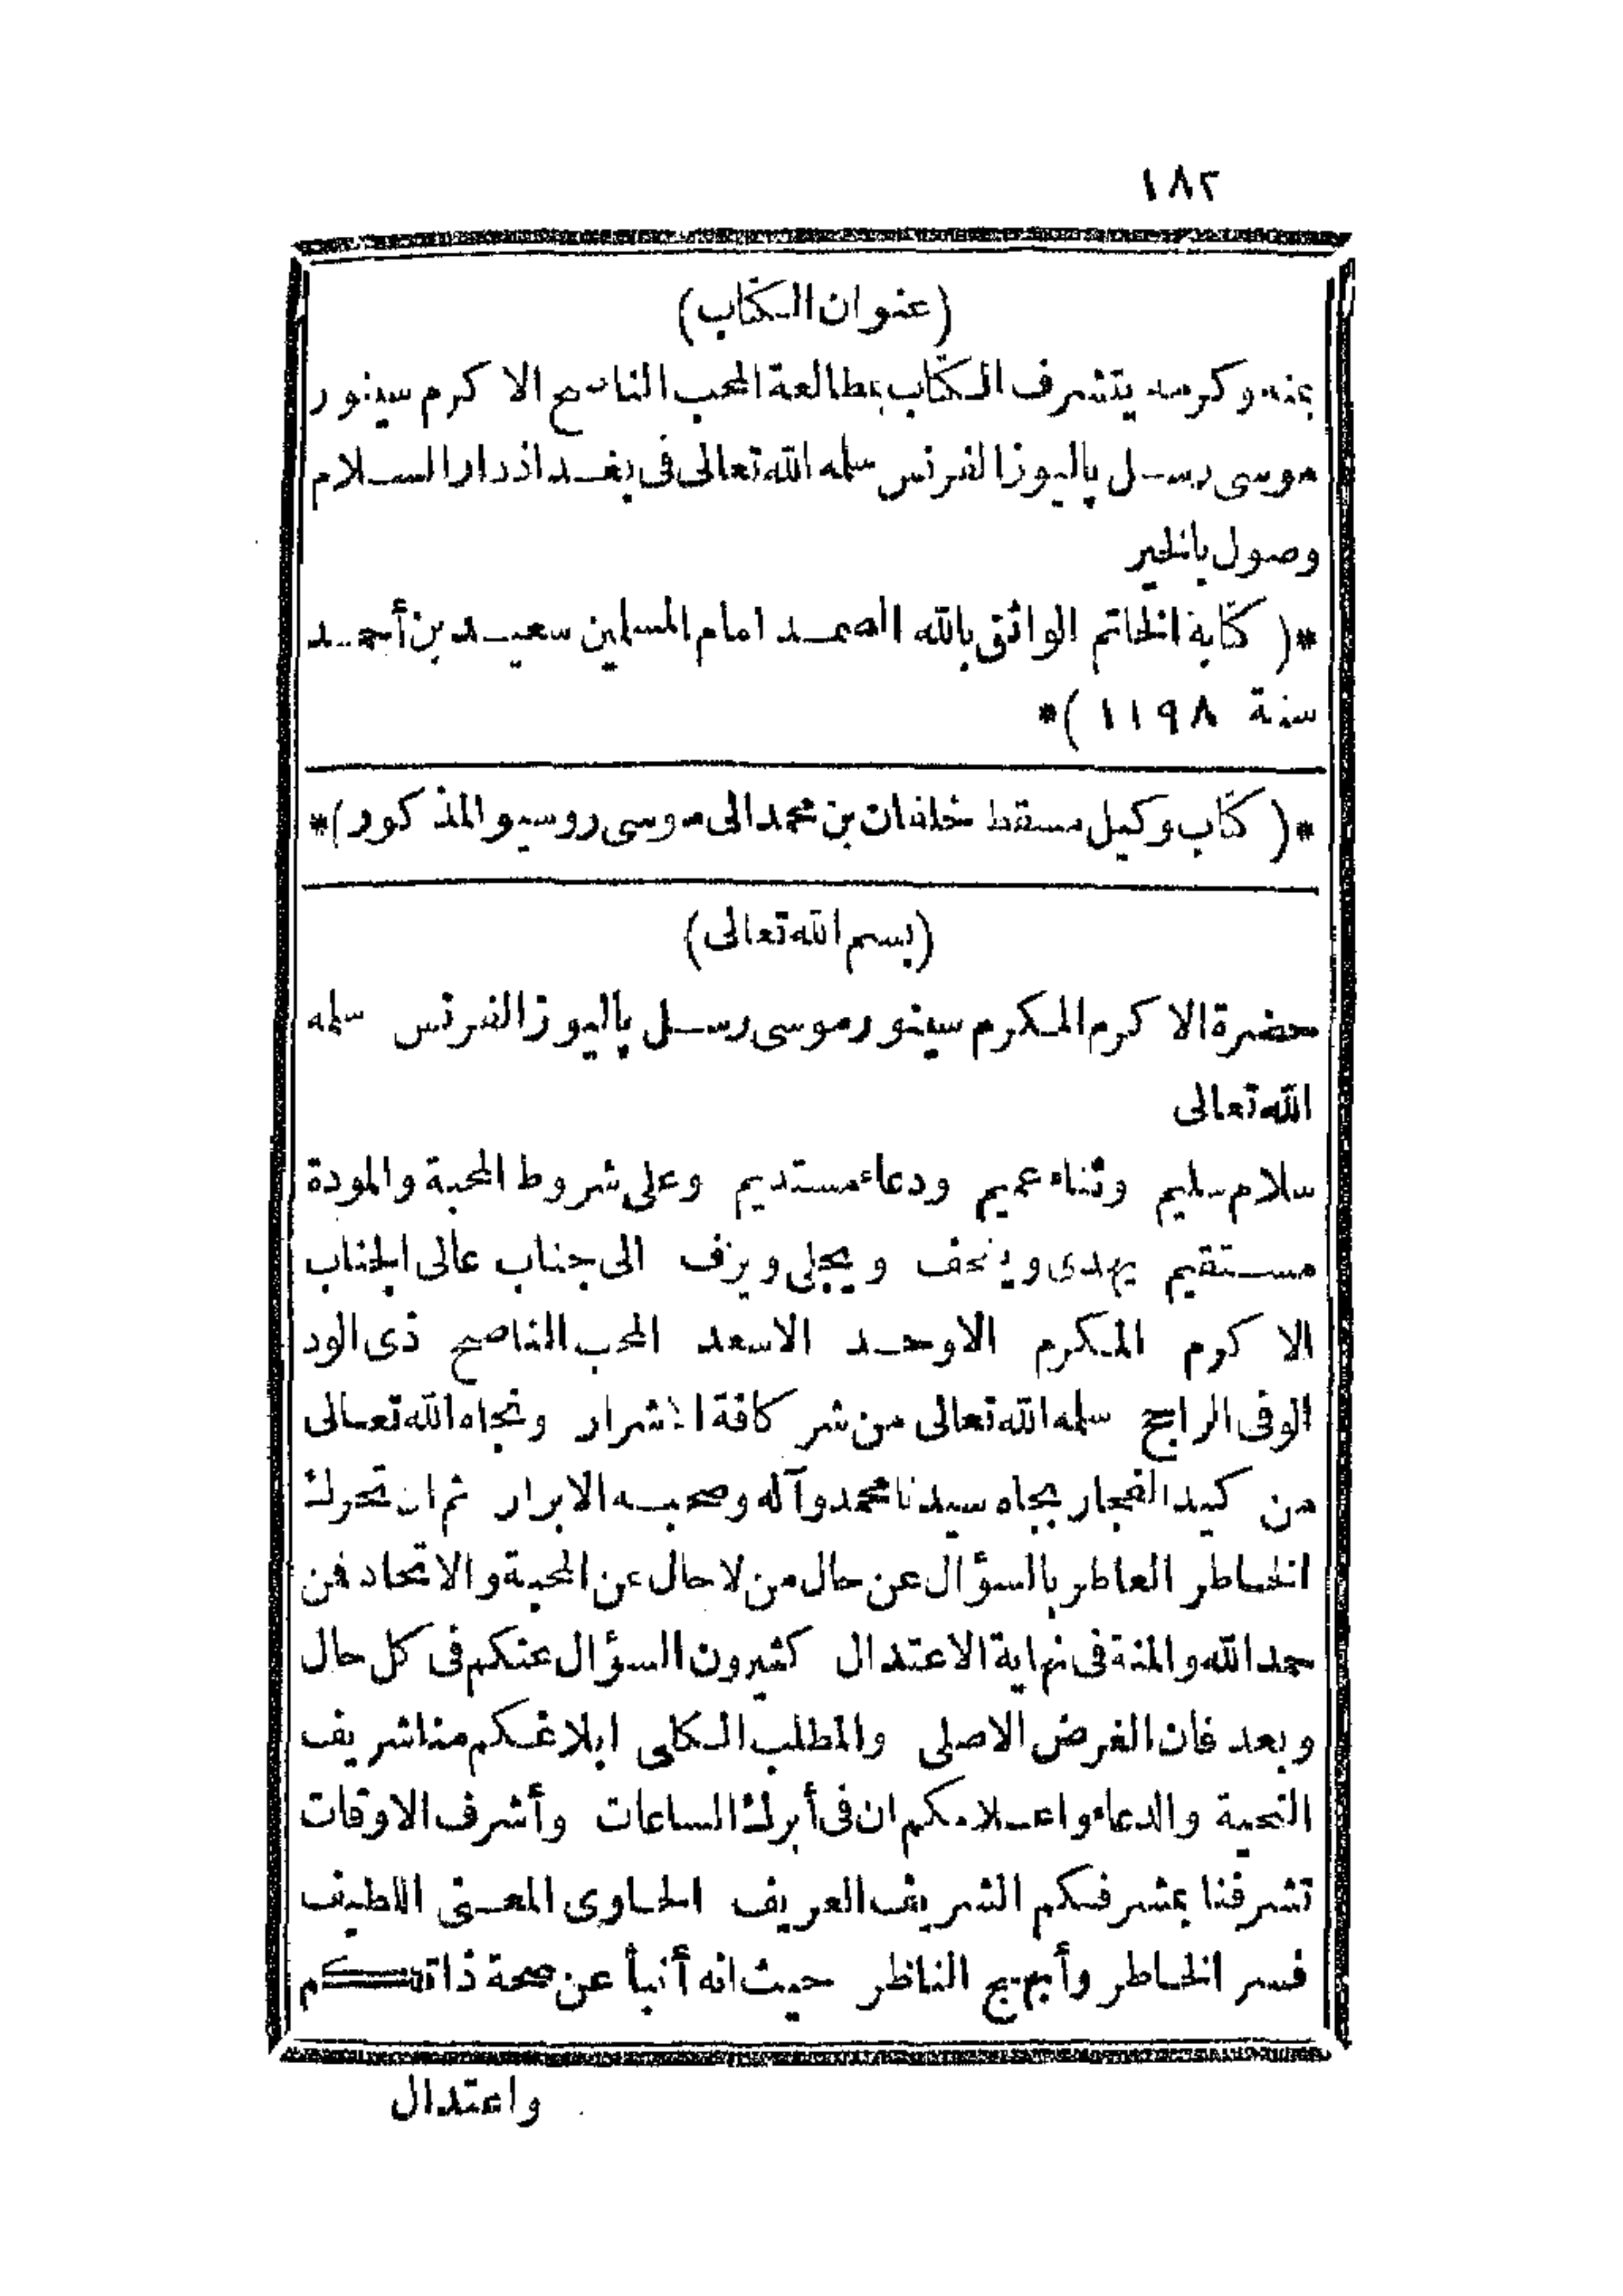 ١٨٢
(عنوان الكتاب)
بمنه وكرمه يتشرف الكتاب بمطالعة المحب الناصح الاكرم سينور
موسى رسل باليوز الفرنس سلمه الله تعالى فى بغداذ دار السلام
وصول بالخير
*( كتابة الخاتم الواثق بالله الصمد امام المسلمين سعيد بن أحمد
سنة ١١٩٨ )*
*( كتاب وكيل مسقط خلفان بن محمد الى موسى روسيو المذكور )*
(بسم الله تعالى)
حضرة الاكرم المكرم سينور موسى رسل باليوز الفرنس سلمه
الله تعالى
سلام سليم وثناء عميم ودعاء مستديم وعلى شروط المحبة والمودة
مستقيم يهدى ويتحف ويجلى ويزف الى جناب عالى الجناب
الاكرم المكرم الاوحد الاسعد المحب الناصح ذى الود
الوفى الراجح سلمه الله تعالى من شر كافة الاشرار ونجاه الله تعالى
من كيد الفجار بجاه سيدنا محمد وآله وصحبه الابرار ثم ان تحرك
الخاطر العاطر بالسؤال عن حال من لا حال عن المحبة والاتحاد فمن
حمد الله والمنة فى نهاية الاعتدال كثيرون السؤال عنكم فى كل حال
وبعد فان الغرض الاصلى والمطلب الكلى ابلاغكم منا شريف
التحية والدعاء واعلامكم ان فى أبرك الساعات وأشرف الاوقات
تشرفنا بمشرفكم الشريف العريف الحاوى المعنى اللطيف
فسر الخاطر وأبهج الناظر حيث انه أنبأ عن صحة ذاتكم
واعتدال